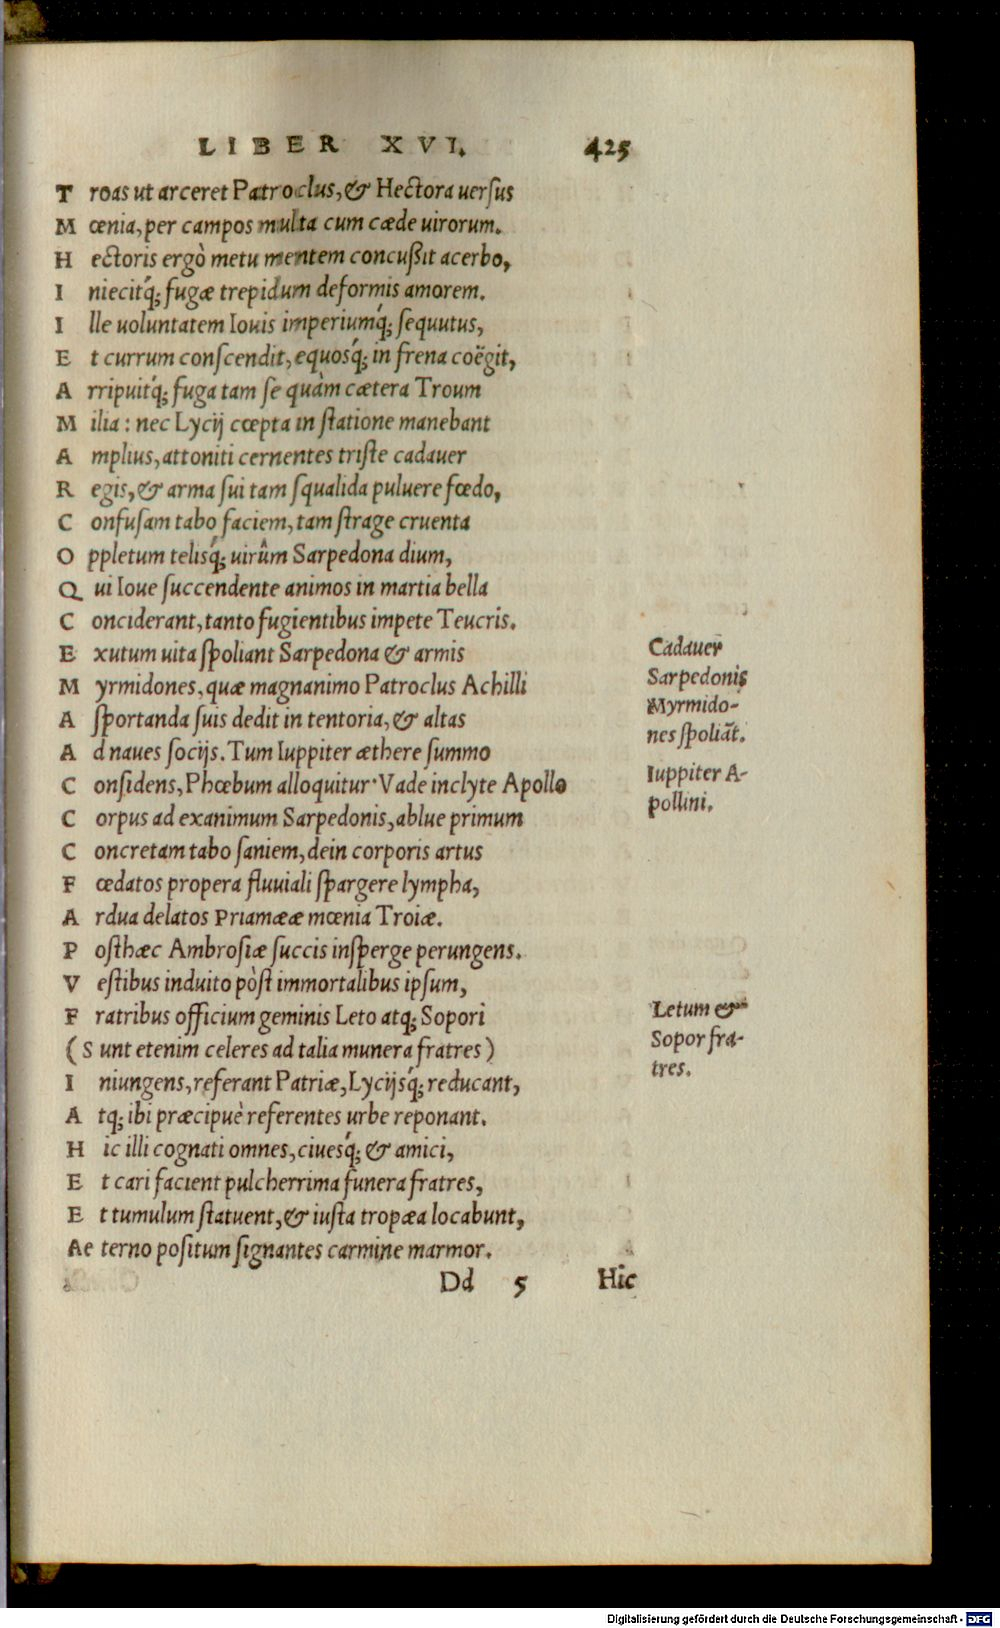 LIBER XVI. 425
Troas ut arceret Patroclus, & Hectora uersus
Mœnia, per campos multa cum cæde uirorum.
Hectoris ergò metu mentem concußit acerbo,
Iniecitq́; fugæ trepidum deformis amorem.
Ille uoluntatem Iouis imperiumq́; sequutus,
Et currum conscendit, equosq́; in frena coëgit,
Arripuitq́; fuga tam se quàm cætera Troum
Milia: nec Lycij cœpta in statione manebant
Amplius, attoniti cernentes triste cadauer
Regis, & arma sui tam squalida puluere fœdo,
Confusam tabo faciem, tam strage cruenta
Oppletum telisq́; uirûm Sarpedona dium,
Qui Ioue succendente animos in martia bella
Conciderant, tanto fugientibus impete Teucris.
Exutum uita spoliant Sarpedona & armis
Myrmidones, quæ magnanimo Patroclus Achilli
Asportanda suis dedit in tentoria, & altas
Ad naues socijs. Tum Iuppiter æthere summo
Considens, Phœbum alloquitur· Vade inclyte Apollo
Corpus ad exanimum Sarpedonis, ablue primum
Concretam tabo saniem, dein corporis artus
Fœdatos propera fluuiali spargere lympha,
Ardua delatos Priamææ mœnia Troiæ.
Posthæc Ambrosiæ succis insperge perungens.
Vestibus induito pòst immortalibus ipsum,
Fratribus officium geminis Leto atq; Sopori
(Sunt etenim celeres ad talia munera fratres)
Iniungens, referant Patriæ, Lycijsq́; reducant,
Atq; ibi præcipuè referentes urbe reponant.
Hic illi cognati omnes, ciuesq́; & amici,
Et cari facient pulcherrima funera fratres,
Et tumulum statuent, & iusta tropæa locabunt,
Aeterno positum signantes carmine marmor.
Dd 5 Hic
Cadauer
Sarpedonis
Myrmido-
nes spoliãt.
Iuppiter A-
pollini.
Letum &
Sopor fra-
tres.
Digitalisierung gefördert durch die Deutsche Forschungsgemeinschaft - DFG